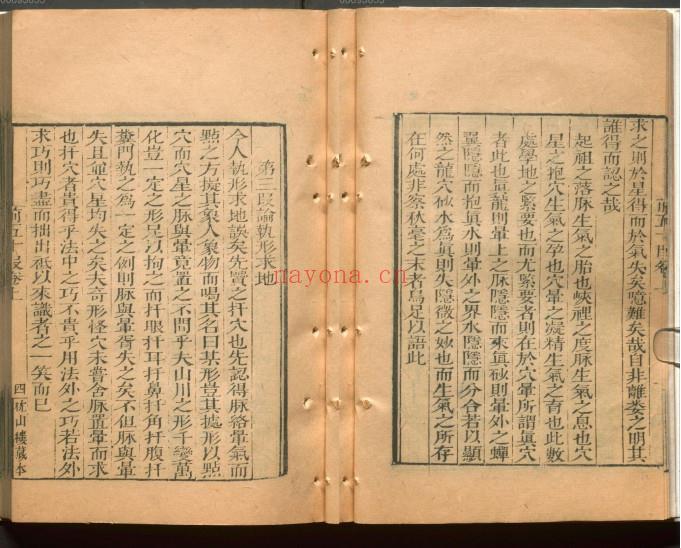 求之則於星得而於氣失矣噫難矣哉自非離婁之明其
誰得而認之哉
起祖之落脉生氣之胎也峽裡之度脉生氣之息也穴
星之抱穴生氣之孕也穴暈之凝精生氣之育也此數
處學地之緊要也而尤緊要者則在於穴暈所謂眞穴
者此也眞龍則暈上之脉隱隱而來眞砂則暈外之蟬
翼隱隱而抱眞水則暈外之界水隱隱而分合若以顯
然之龍穴砂水為眞則失隱微之妙也而生氣之所存
在何處非察秋毫之末者烏足以語此
第三段論執形求地
今人執形求地誤矣先賢之扦穴也先認得脉絡暈氣而
點之方擬其象人象物而喝其名曰某形豈其據形以點
穴而穴星之脉與暈竟置之不問乎夫山川之形千變萬
化豈一定之形足以拘之而扦眼扦耳扦鼻扦角扦腹扦
糞門執之為一定之例則脉與暈胥失之矣不但脉與暈
失且並穴星均失之矣夫奇形怪穴未嘗舍脉置暈而求
也扦穴者貴得乎法中之巧不貴乎用法外之巧若法外
求巧則巧盡而拙出祗以來識者之一笑而已
四祕山樓藏本
nayona.cn